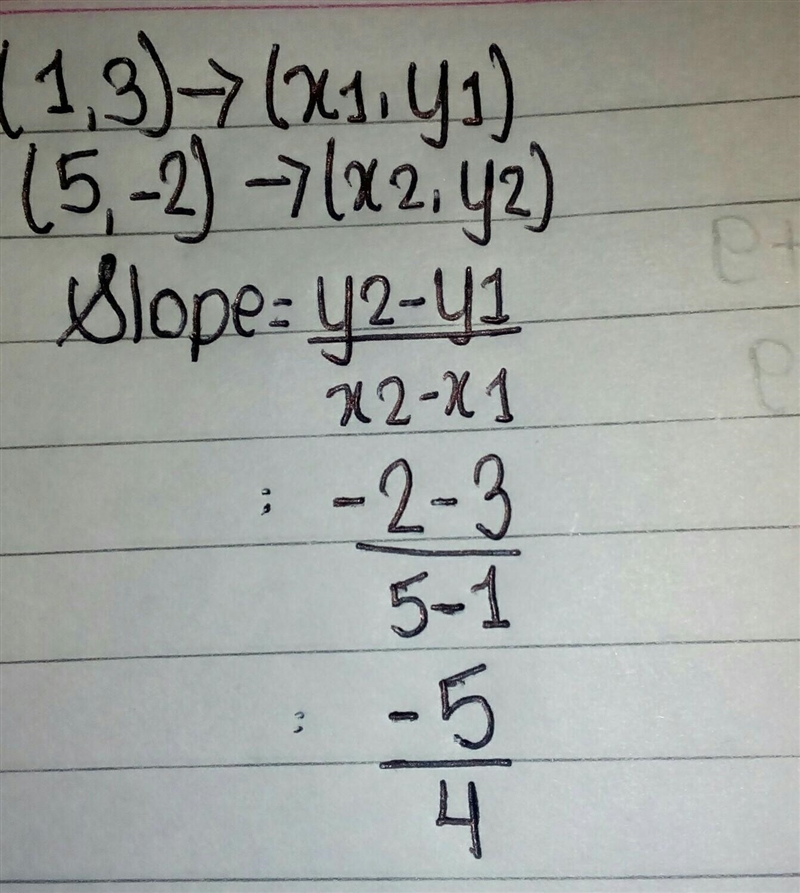 (1,3)→(x1,y1)
(5,-2)→(x2,y2)
Slope= y2-y1
x2-x1
: -2-3
5-1
: -5
4